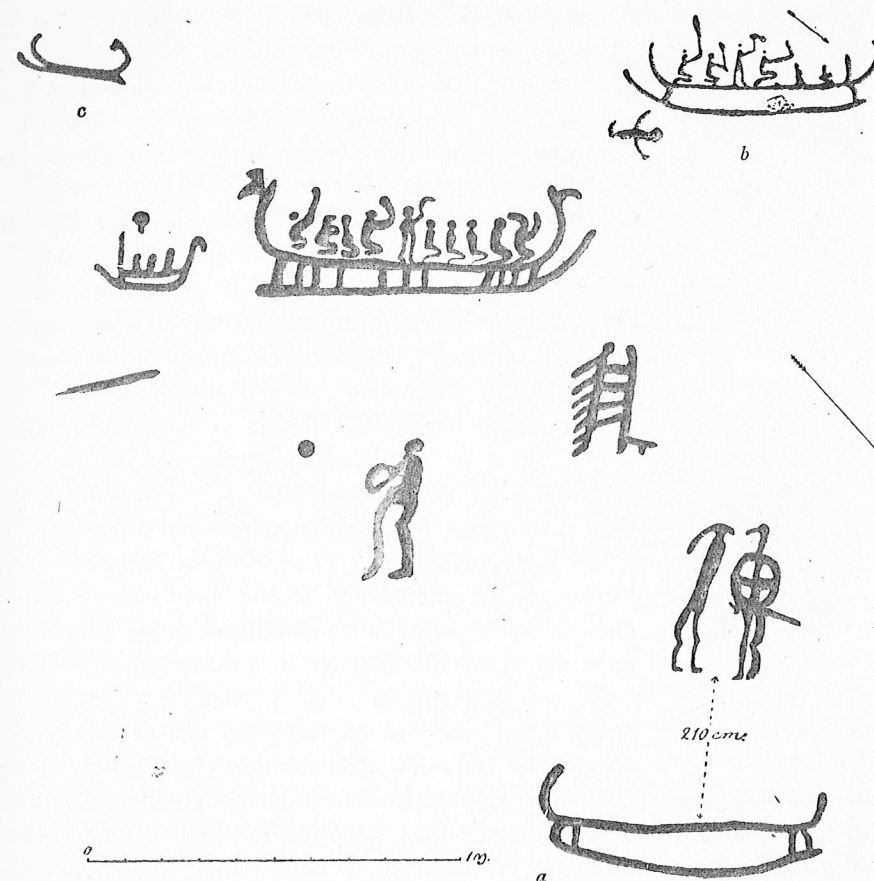 c
b
210 cm.
0 1 m.
a